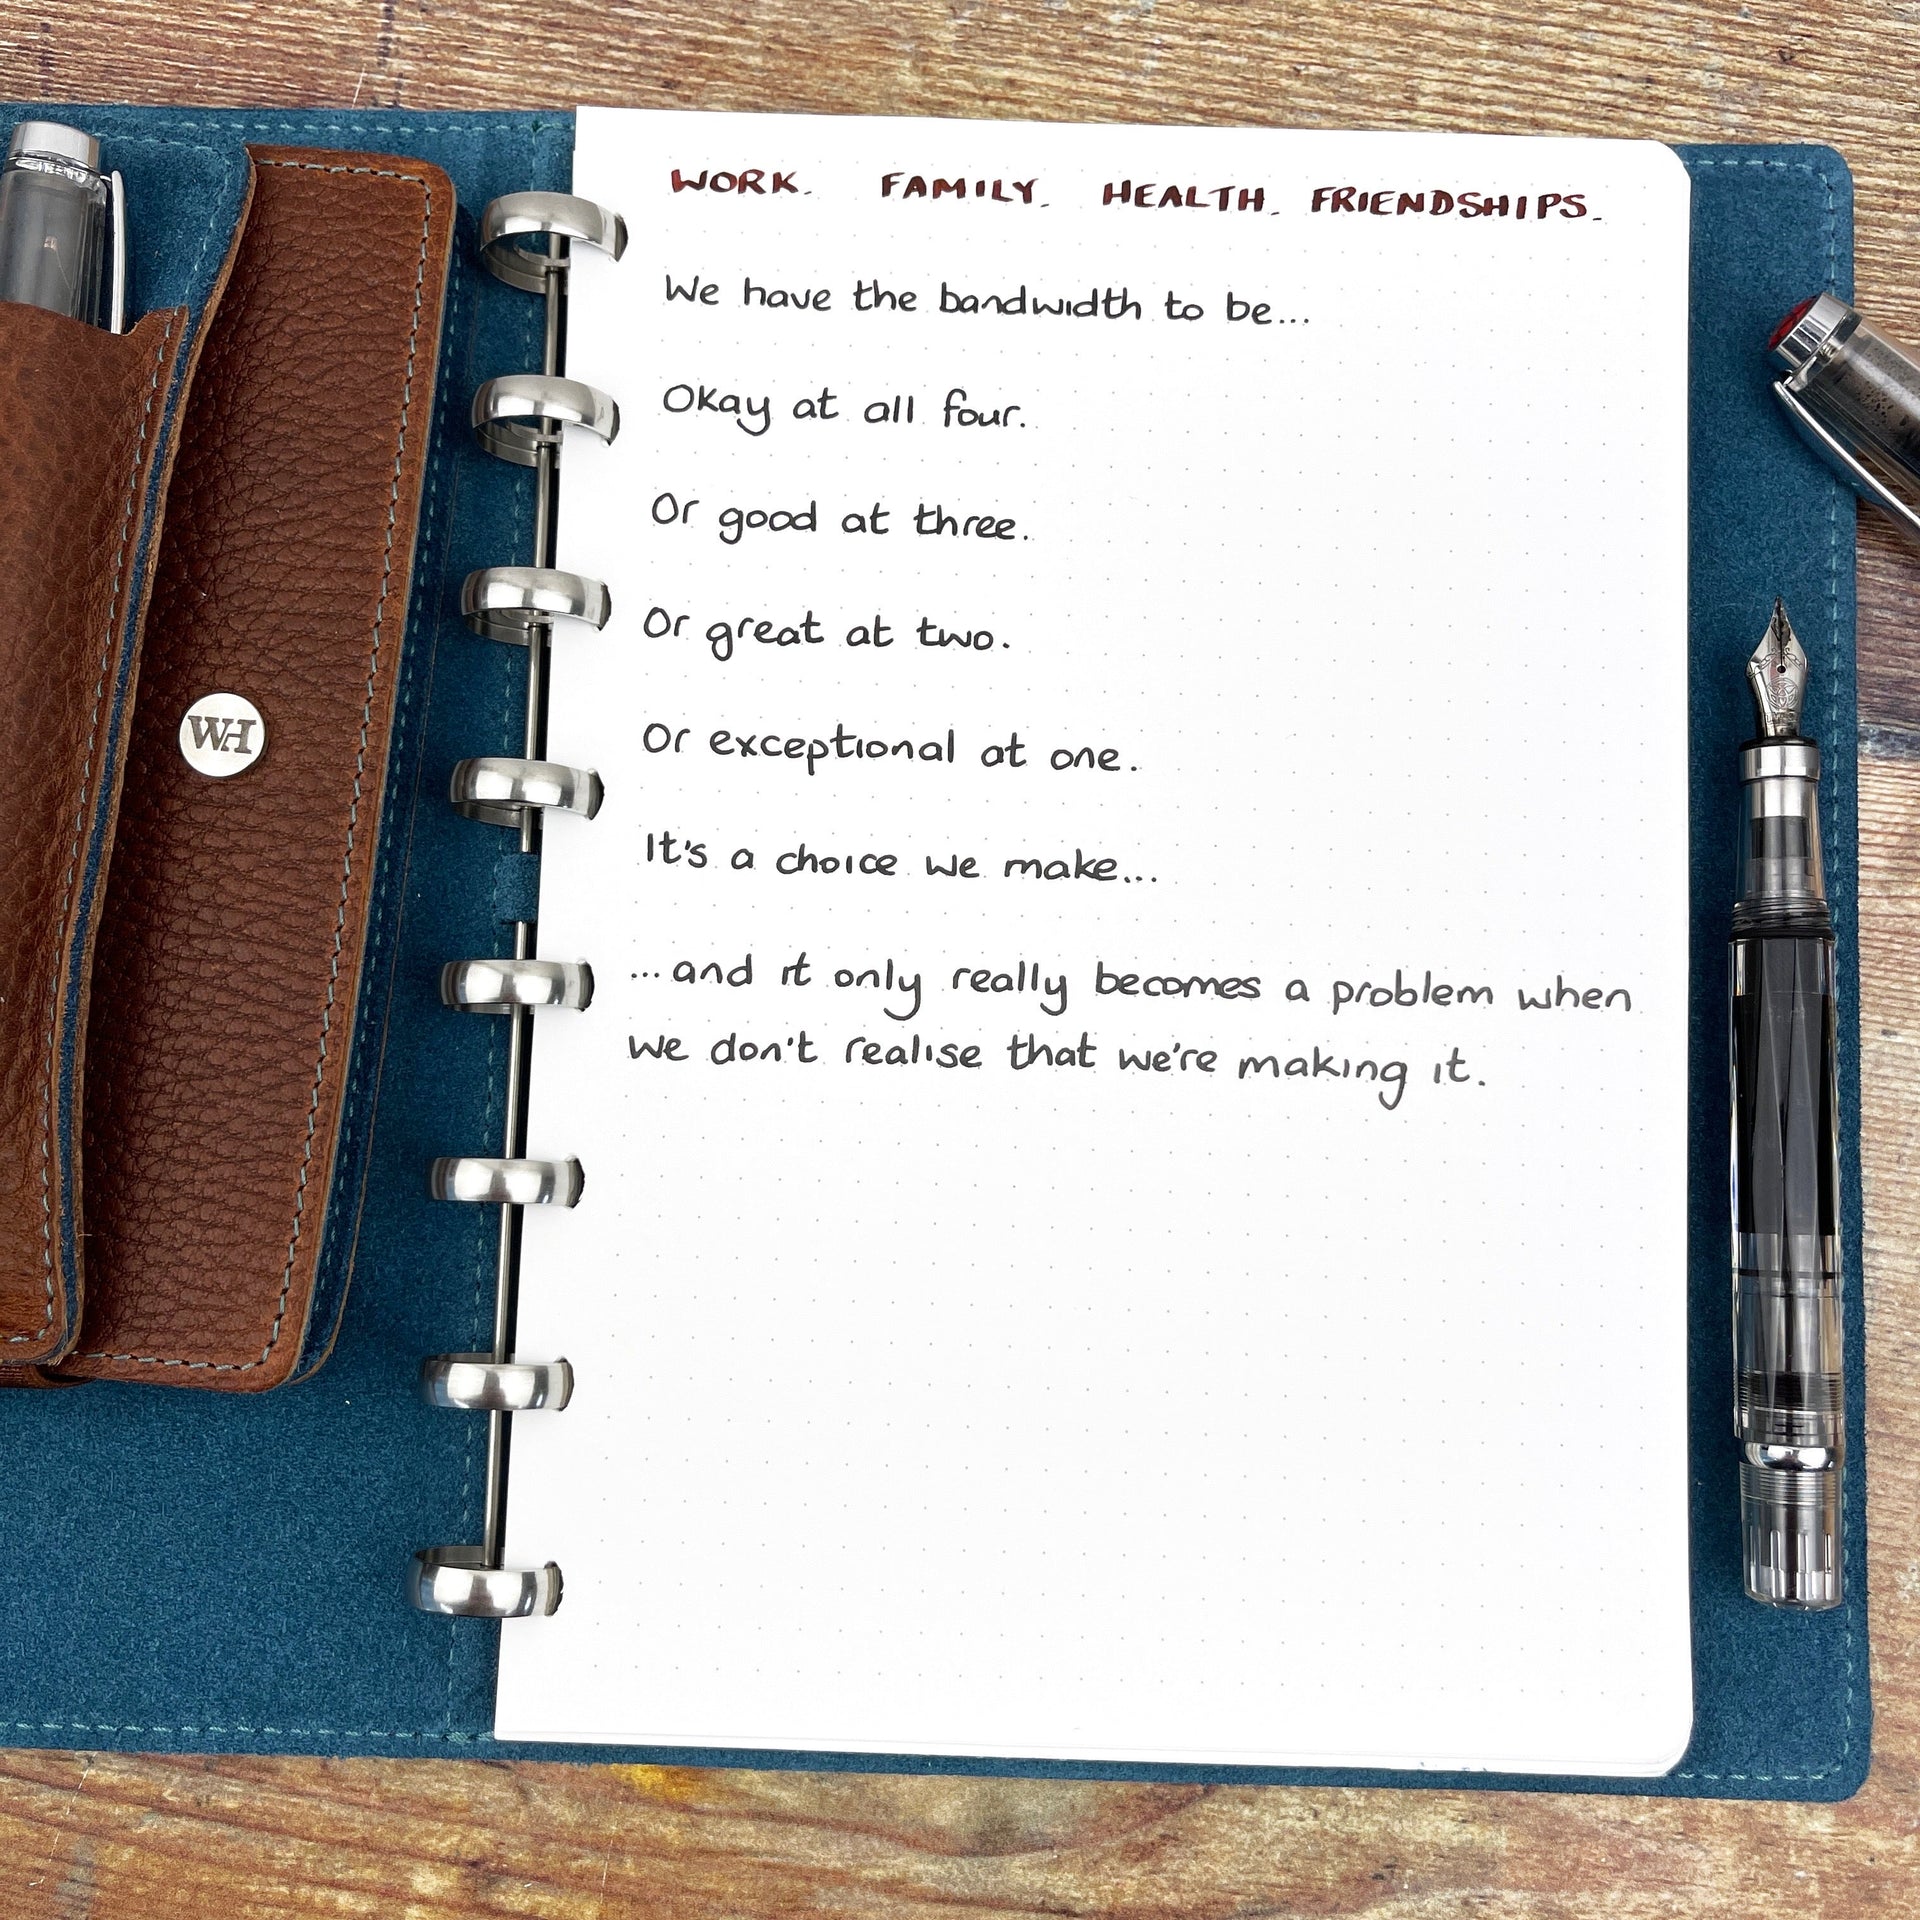 WORK. FAMILY. HEALTH. FRIENDSHIPS.
We have the bandwidth to be...
Okay at all four.
Or good at three.
Or great at two.
Or exceptional at one.
It's a choice we make...
...and it only really becomes a problem when
we don't realise that we're making it.
WH